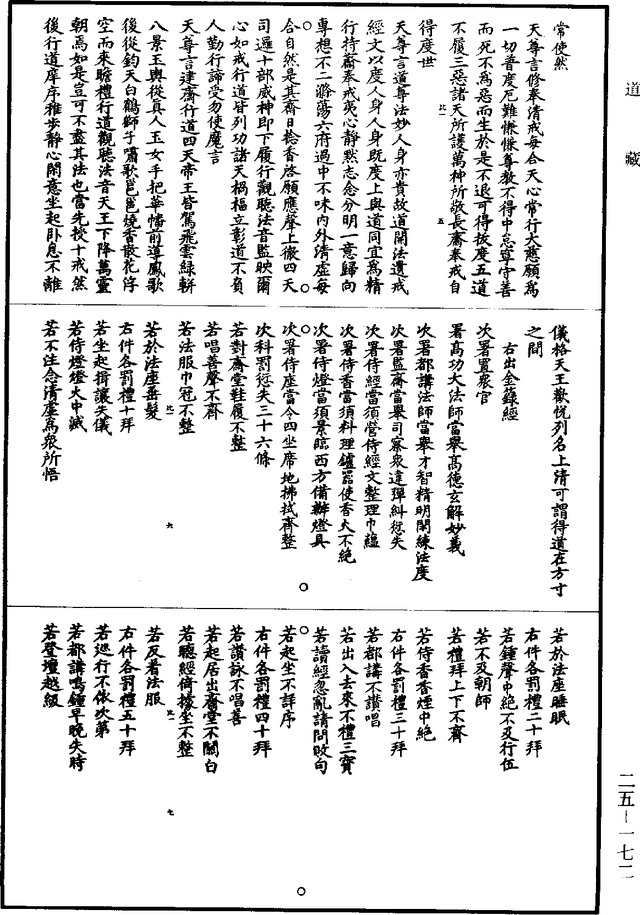 道藏
常使然
天尊言修奉清戒每合天心常行大慈願為
一切普度厄難慊慊尊教不得中怠寧守善
而死不為惡而生於是不退可得拔度五道
不履三惡諸天所護萬神所敬長齋奉戒自
得度世
天尊言道尊法妙人身亦貴故道開法遺戒
經文以度人身人身既度上與道同宜為精
行持齋奉戒夷心靜默志念分明一意歸向
專想不二滌蕩六府過中不味內外清虛每
合自然是其齋日捻香啓願應聲上徹四天
司邏十部威神即下履行觀聽法音監映爾
心如戒行道皆列功諸天禍福立彰道不負
人勤行諦受勿使魔言
天尊言建齋行道四天帝王皆駕飛雲綠軿
八景玉輿從真人玉女手把華幡前導鳳歌
後從鈞天白鶴獅子嘯歌邕邕燒香散花浮
空而來瞻禮行道觀聽法音天王下降萬靈
朝焉如是豈可不盡其法也當先授十戒然
後行道庠序雅步靜心閑意坐起卧息不離
儀格天王歡悅列名上清可謂得道在方寸
之間
右出金籙經
次署置衆官
署高功大法師當舉高德玄解妙義
次署都講法師當舉才智精明閑練法度
次署監齋當舉司察衆違彈糾愆失
次署侍經當須營侍經文整理巾蘊
次署侍香當須料理鑪器使香火不絕
次署侍燈當須景臨西方備辦燈具
次署侍座當令四坐席地拂拭齊整
次科罰愆失三十六條
若對齋堂鞋履不整
若唱善聲不齊
若法服巾冠不整
若於法座垂髮
右件各罰禮十拜
若坐起揖讓失儀
若侍燈燈火中滅
若不注念清虛為衆所悟
若於法座睡眠
右件各罰禮二十拜
若鍾聲中絕不及行伍
若不及朝師
若禮拜上下不齊
若侍香香煙中絕
右件各罰禮三十拜
若都講不讚唱
若出入去來不禮三寶
若讀經忽亂請問改句
若起坐不詳序
右件各罰禮四十拜
若讚詠不唱善
若起居出齋堂不關白
若聽經倚據坐不整
若反着法服
右件各罰禮五十拜
若巡行不依次第
若都講鳴鍾早晚失時
若登壇越級
二五－一七二